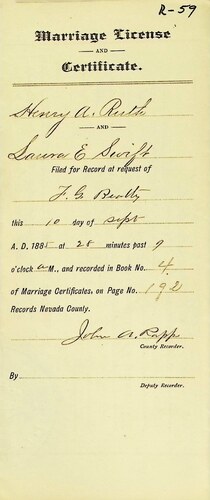 R-59
Marriage License
AND
Certificate.
Henry A. Ruth
AND
Laura E Swift
Filed for Record at request of
F. G. Beatty
this 10 day of Sept
A. D. 1885 at 28 minutes past 9
o'clock a M., and recorded in Book No. 4
of Marriage Certificates, on Page No. 192
Records Nevada County.
John A. Rapp
County Recorder.
By
Deputy Recorder.